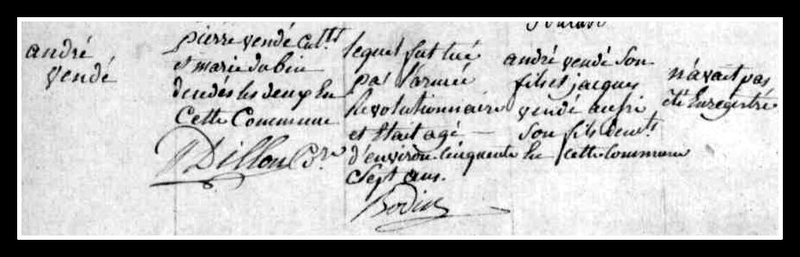 andré
vendé
pierre vendé cult.
et marie dubin
décédés les deux en
Cette Commune
Dillon C.re
lequel fut tué
par l'armée
Revolutionnaire
et était agé
d'environ cinquante
sept ans.
Bodin
andré vendé son
fils et jacques
vendé aussi
son fils dem.ts
en cette commune
n'avait pas
été Enregistré